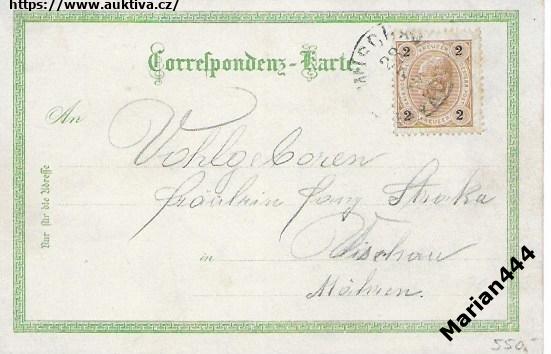 https://www.auktiva.cz/
Correspondenz-Karte
WISCHAU
2 KREUZER 2
2 2
An
Wohlgeboren
Fräulein Fany
in Wischau
Mähren.
Nur für die Adresse
Marian444
550,-